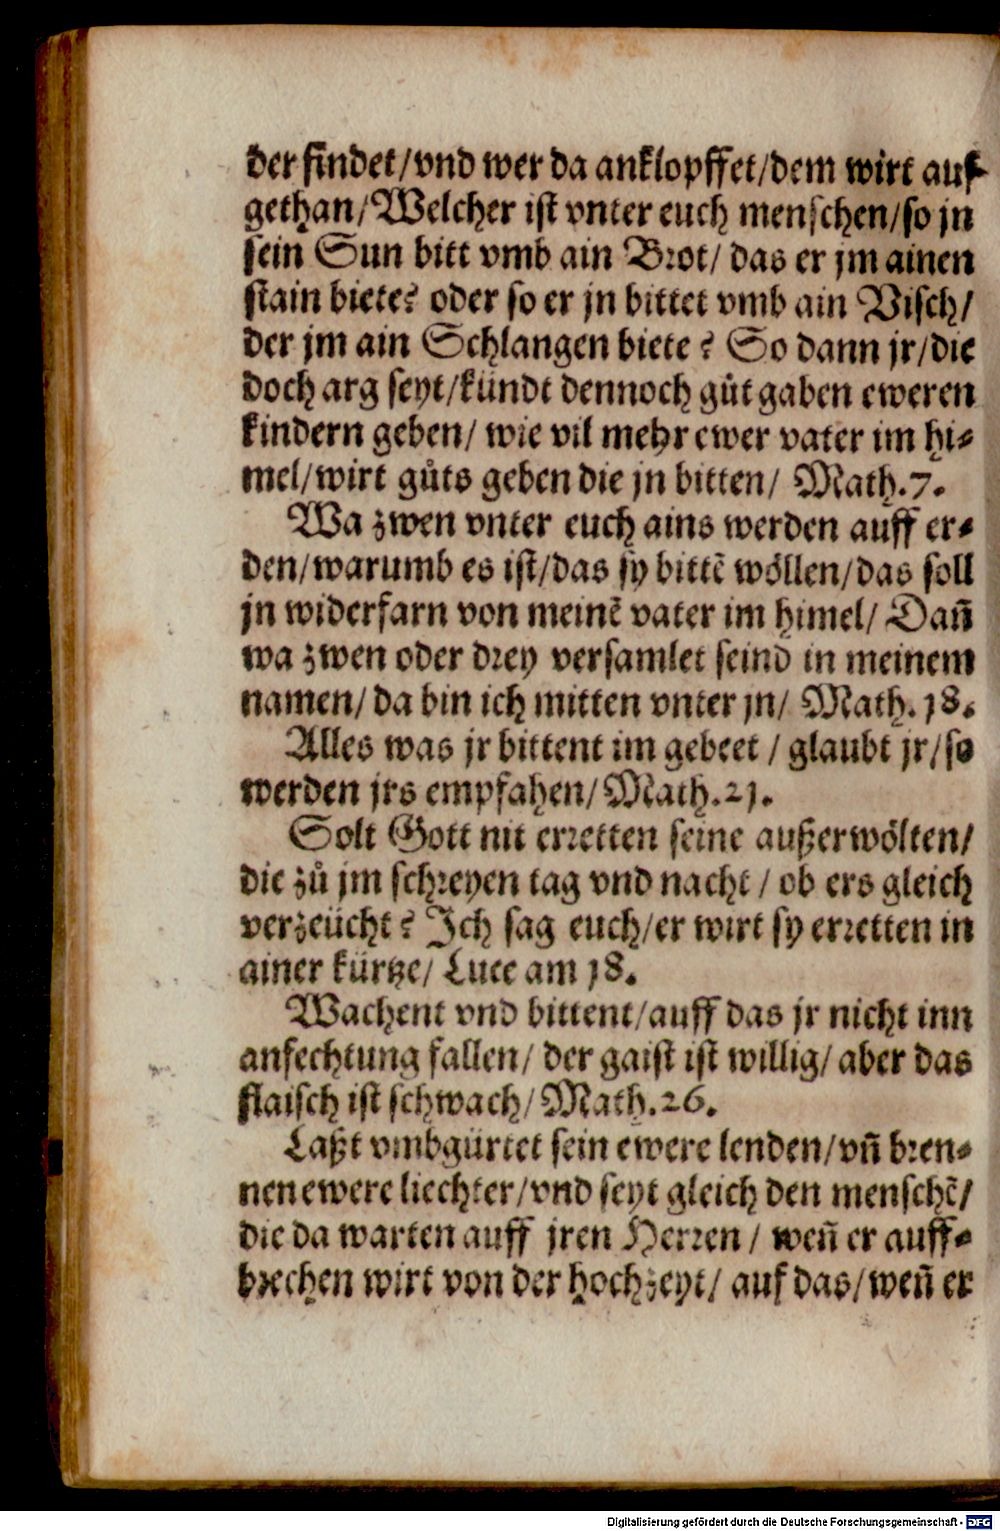 der findet/vnd wer da anklopffet/dem wirt auf-
gethan/Welcher ist vnter euch menschen/so jn
sein Sun bitt vmb ain Brot/ das er jm ainen
stain biete? oder so er jn bittet vmb ain Visch/
der jm ain Schlangen biete? So dann jr/die
doch arg seyt/kündt dennoch gůt gaben eweren
kindern geben/ wie vil mehr ewer vater im hi-
mel/wirt gůts geben die jn bitten/ Math.7.
Wa zwen vnter euch ains werden auff er-
den/warumb es ist/das sy bittẽ wöllen/das soll
jn widerfarn von meinẽ vater im himel/ Dañ
wa zwen oder drey versamlet seind in meinem
namen/ da bin ich mitten vnter jn/ Math. 18.
Alles was jr bittent im gebeet / glaubt jr/so
werden jrs empfahen/Math.21.
Solt Gott nit erretten seine außerwölten/
die zů jm schreyen tag vnd nacht / ob ers gleich
verzeücht? Ich sag euch/er wirt sy erretten in
ainer kürtze/ Luce am 18.
Wachent vnd bittent/auff das jr nicht inn
anfechtung fallen/ der gaist ist willig/ aber das
flaisch ist schwach/Math.26.
Laßt vmbgürtet sein ewere lenden/vñ bren-
nen ewere liechter/vnd seyt gleich den menschẽ/
die da warten auff jren Herren / weñ er auff-
brechen wirt von der hochzeyt/ auf das/weñ er
Digitalisierung gefördert durch die Deutsche Forschungsgemeinschaft - DFG